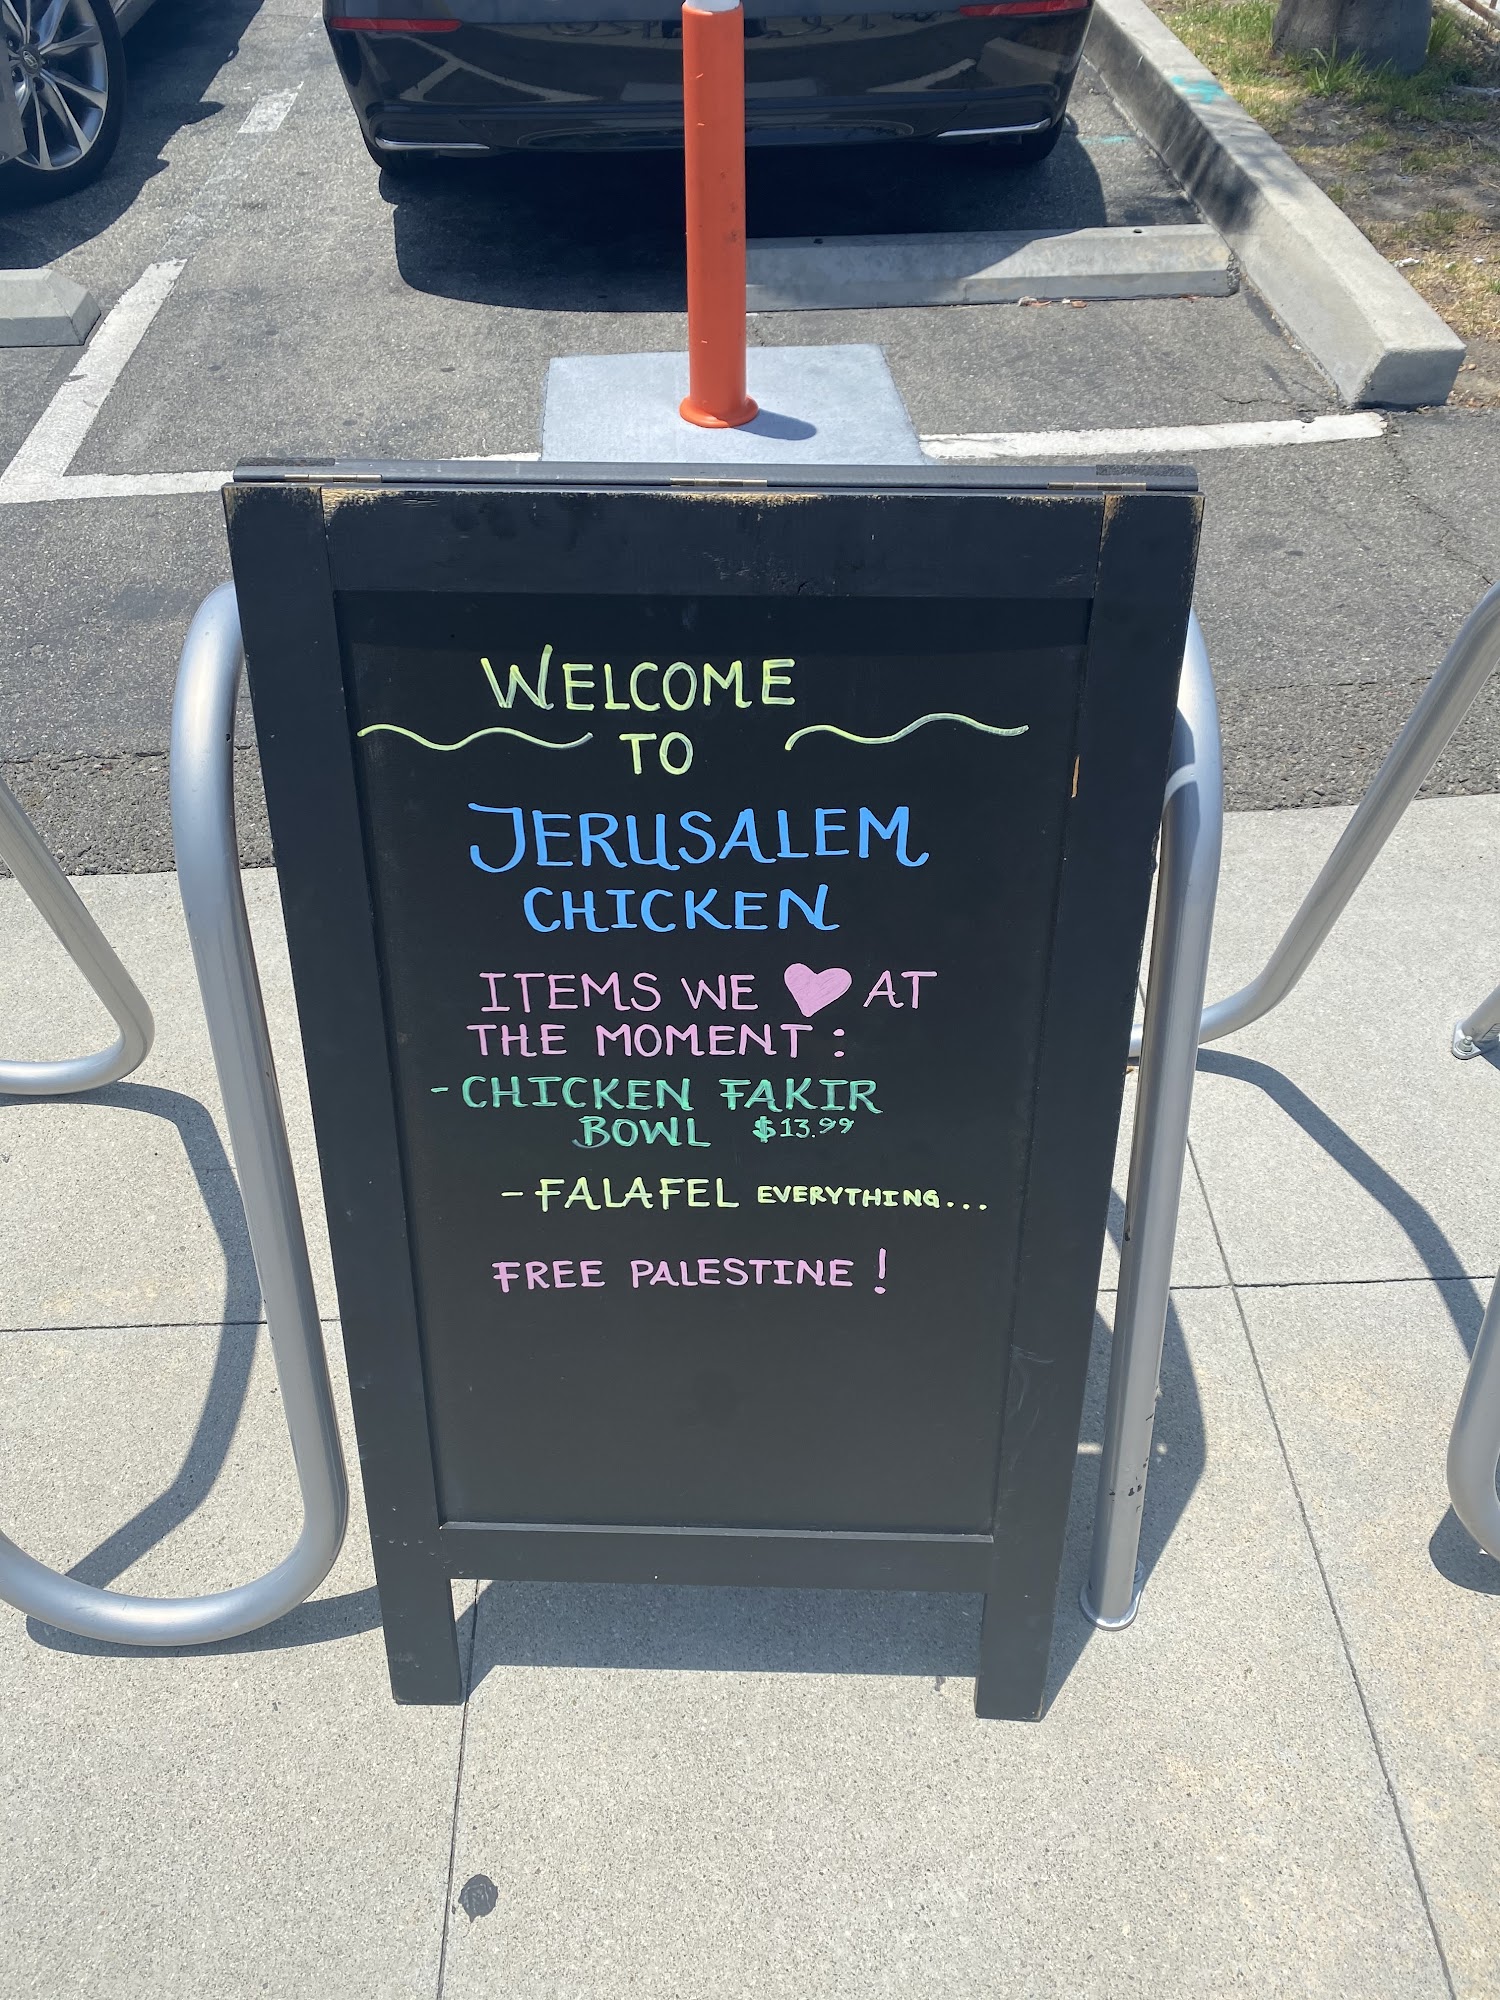 WELCOME
TO
JERUSALEM
CHICKEN
ITEMS WE ♥ AT
THE MOMENT :
- CHICKEN FAKIR
BOWL $13.99
- FALAFEL EVERYTHING...
FREE PALESTINE !